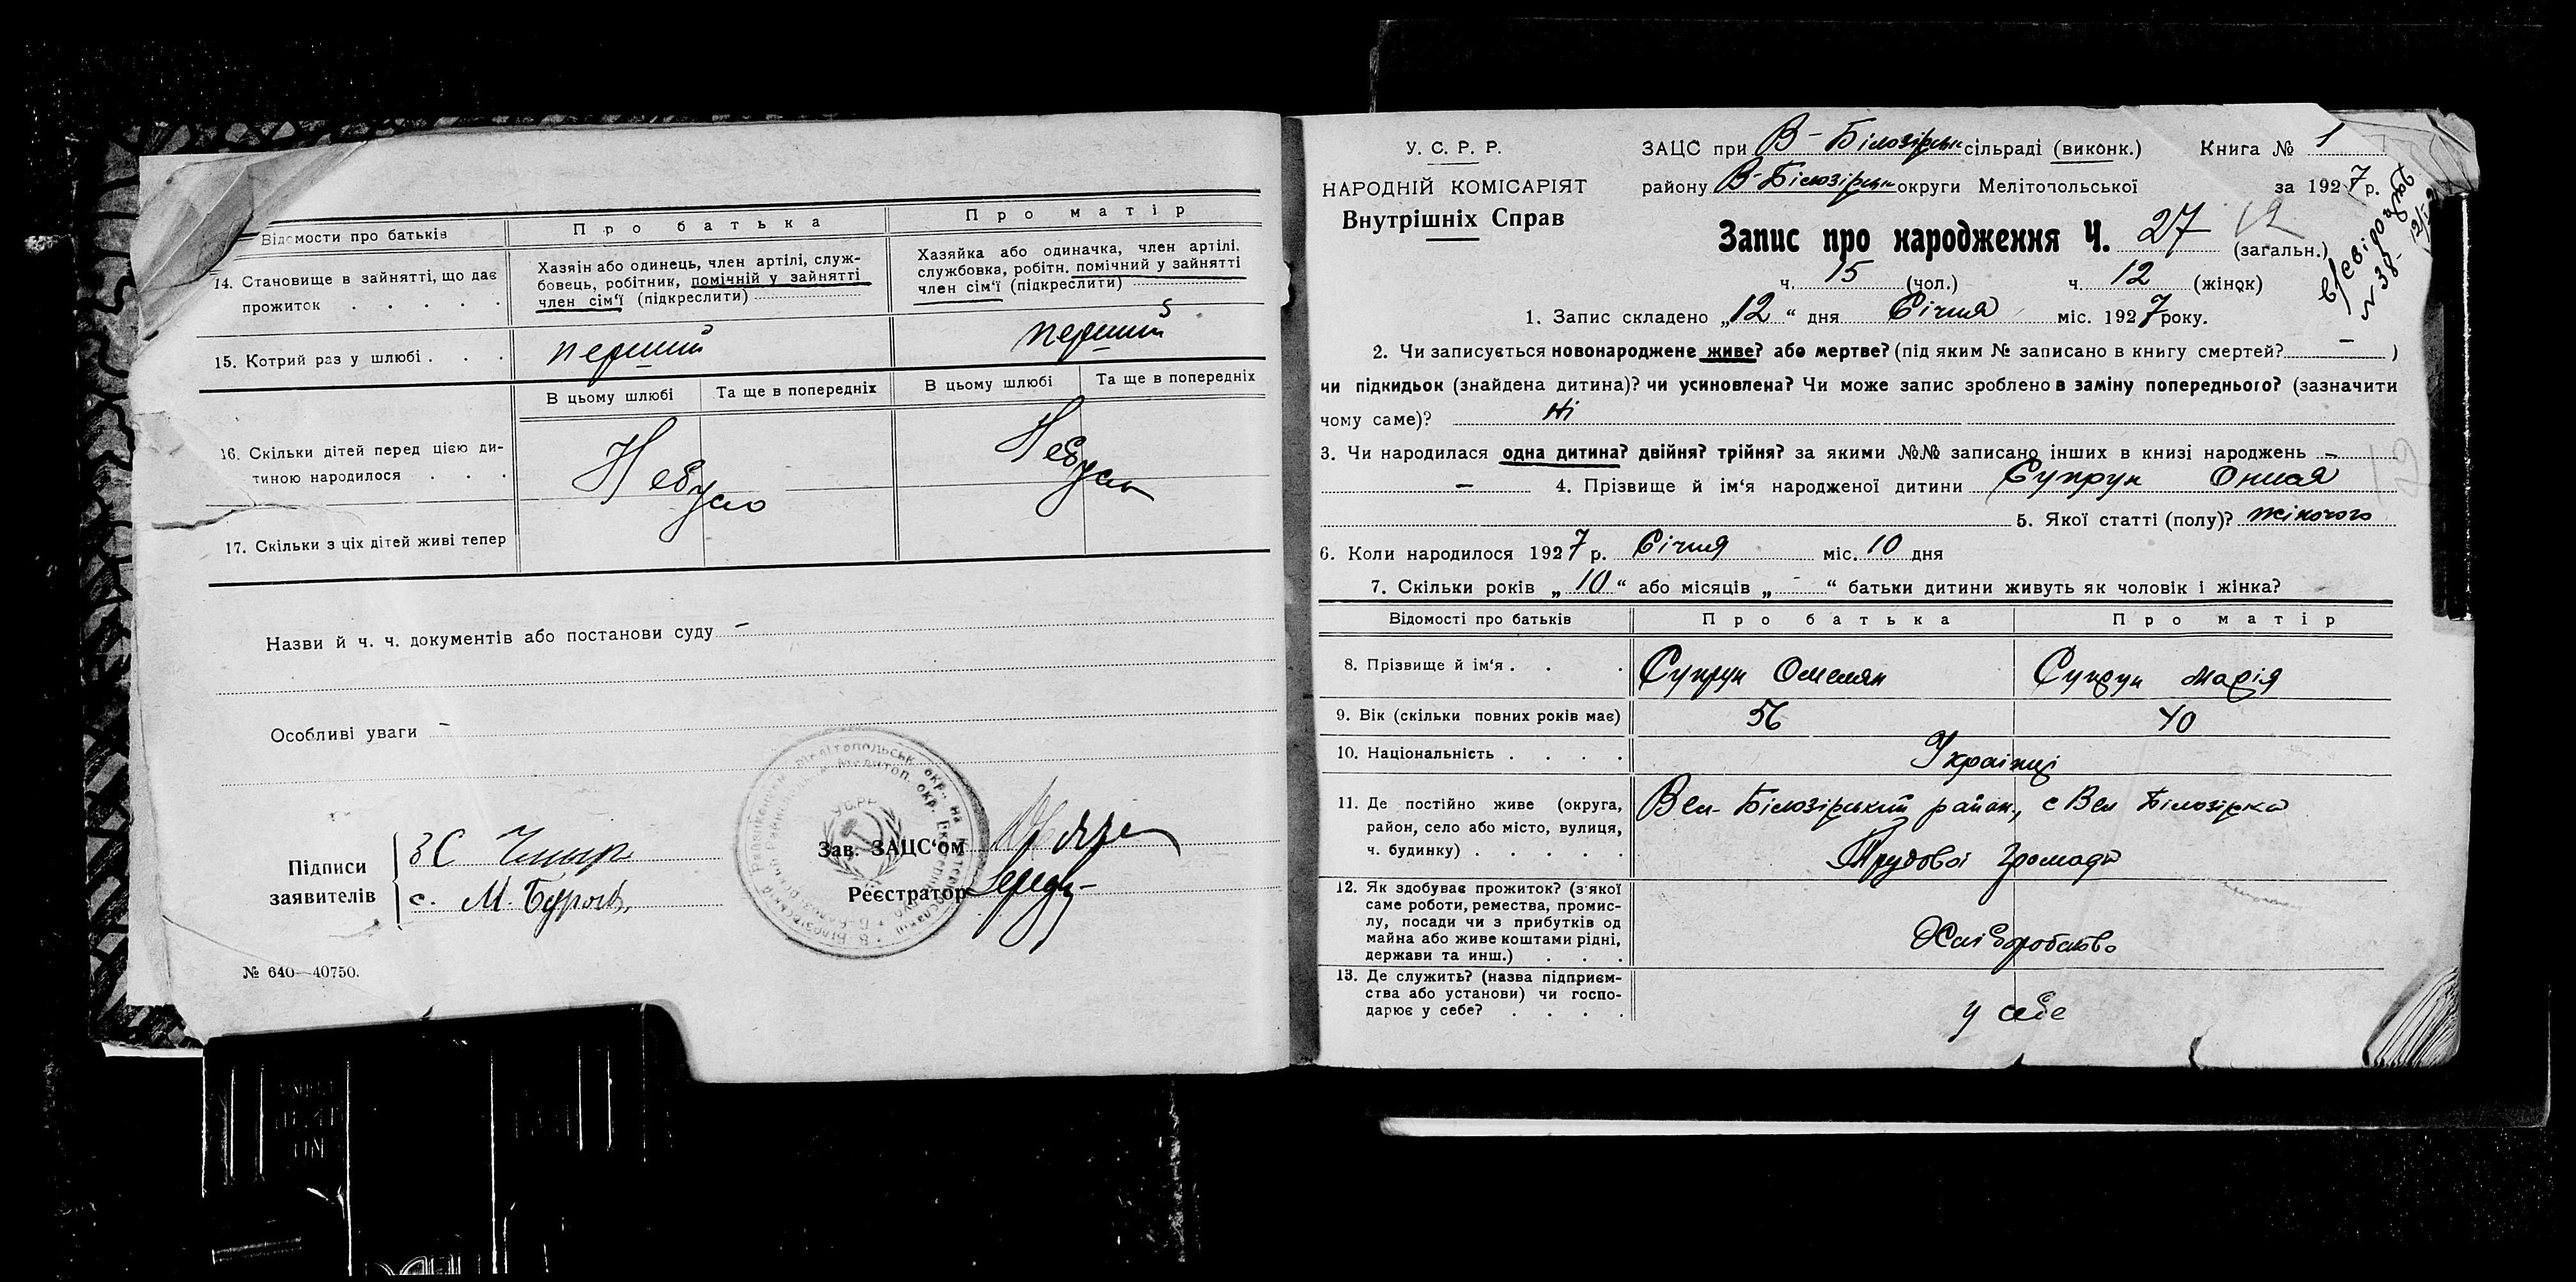 Відомости про батьків
Про батька
Про матір
14. Становище в зайнятті, що дає
прожиток . . . . .
Хазяін або одинець, член артілі, служ-
бовець, робітник, помічній у зайнятті
член сім‘ї (підкреслити)
Хазяйка або одиначка, член артілі,
службовка, робітн. помічний у зайнятті
член сім‘ї (підкреслити)
15. Котрий раз у шлюбі . . .
перший
перший
В цьому шлюбі
Та ще в попередніх
В цьому шлюбі
Та ще в попередніх
16. Скільки дітей перед цією ди-
тиною народилося . . .
Небуло
Небуло
17. Скільки з ціх дітей живі тепер
Назви й ч. ч. документів або постанови суду –
Особливі уваги –
Підписи
заявителів
ЗС
с. М.
УСРР
Зав. ЗАЦС‘ом
Реєстратор
№ 640—40750.
У. С. Р. Р.
НАРОДНІЙ КОМІСАРІЯТ
Внутрішніх Справ
ЗАЦС при В-Білозірськ сільраді (виконк.) Книга № 1
району В-Білозірськ округи Мелітопольської за 1927 р.
Запис про народження Ч. 27 (загальн.)
12
ч. 15 (чол.) ч. 12 (жінок)
№ 38
1. Запис складено „12“ дня Січня міс. 1927 року.
2. Чи записується новонароджене живе? або мертве? (під яким № записано в книгу смертей? – )
чи підкидьок (знайдена дитина)? чи усиновлена? Чи може запис зроблено в заміну попереднього? (зазначити
чому саме)? Ні
3. Чи народилася одна дитина? двійня? трійня? за якими №№ записано інших в книзі народжень –
– 4. Прізвище й ім‘я народженої дитини Супрун
5. Якої статті (полу)? жіночого
6. Коли народилося 1927 р. Січня міс. 10 дня
7. Скільки років „10“ або місяців „-“ батьки дитини живуть як чоловік і жінка?
Відомості про батьків
Про батька
Про матір
8. Прізвище й ім‘я . . .
Супрун Омелян
Супрун Марія
9. Вік (скільки повних років має)
56
40
10. Національність . . . .
Українці
11. Де постійно живе (округа,
район, село або місто, вулиця,
ч. будинку) . . . . .
Вел-Білозірський район, с Вел Білозірка
Трудової громади
12. Як здобуває прожиток? (з якої
саме роботи, ремества, промис-
лу, посади чи з прибутків од
майна або живе коштами рідні,
держави та инш.) . . .
Хліборобство
13. Де служить? (назва підприєм-
ства або установи) чи госпо-
дарює у себе? . . . .
у себе